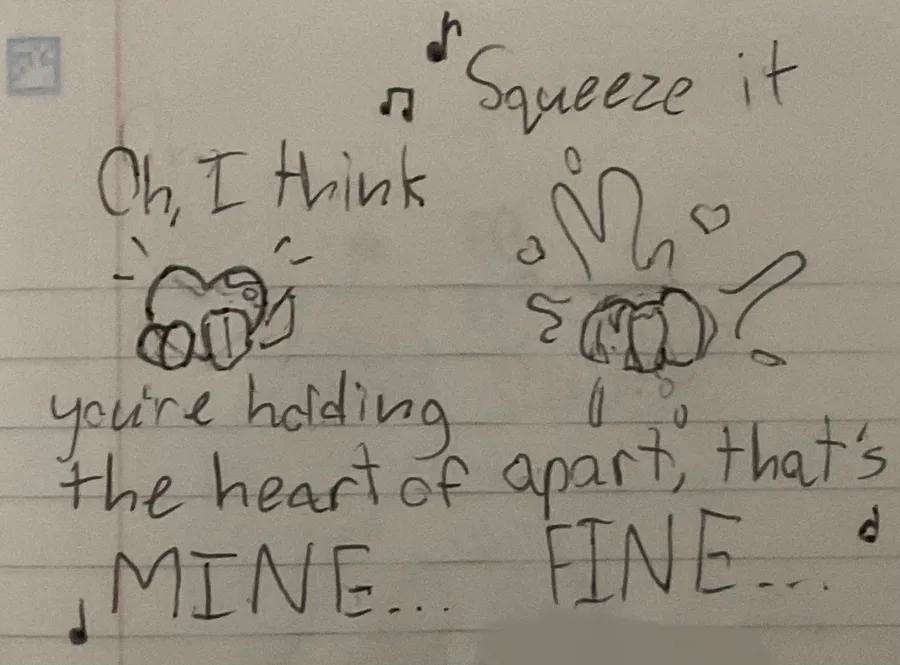 Oh, I think
you're holding
the heart of
MINE...
Squeeze it
apart, that's
FINE...